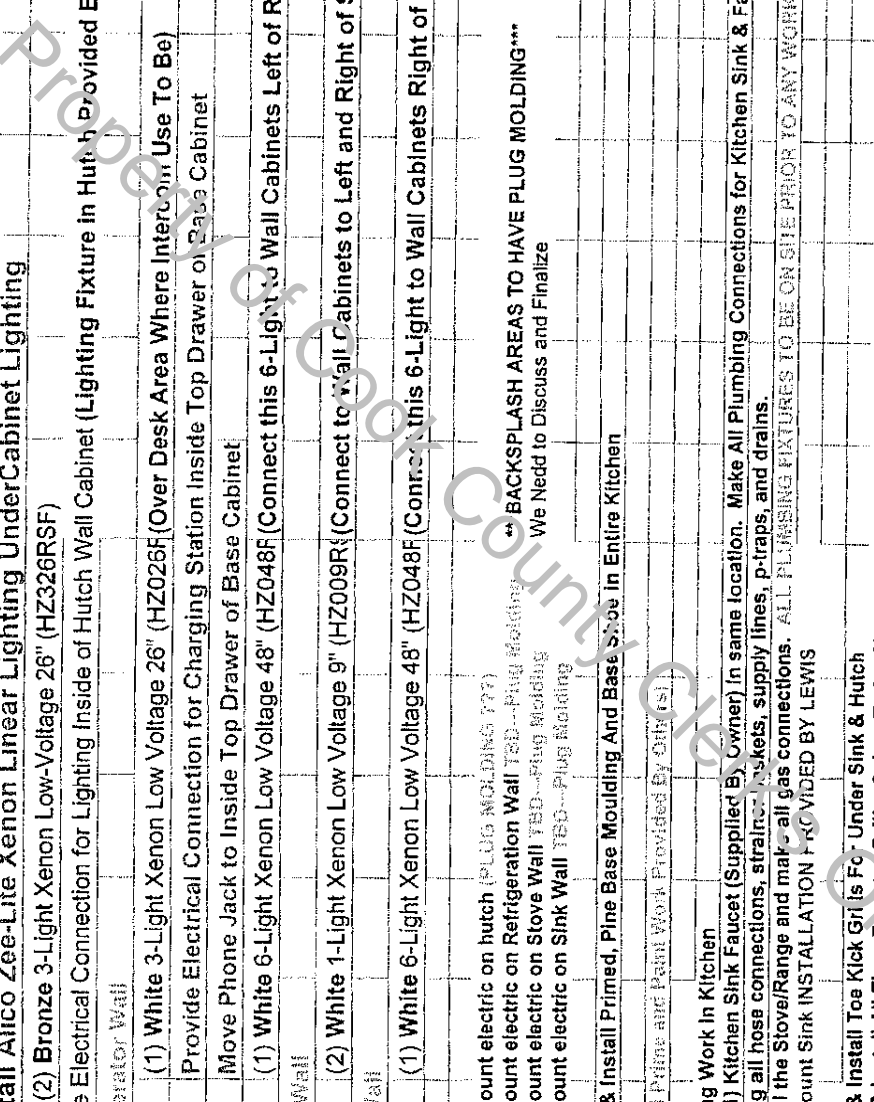 tall Alico Zee-Lite Xenon Linear Lighting UnderCabinet Lighting
(2) Bronze 3-Light Xenon Low-Voltage 26" (HZ326RSF)
e Electrical Connection for Lighting Inside of Hutch Wall Cabinet (Lighting Fixture in Hutch Provided E
erator Wall
(1) White 3-Light Xenon Low Voltage 26" (HZ026F (Over Desk Area Where Intercom Use To Be)
Provide Electrical Connection for Charging Station Inside Top Drawer of Base Cabinet
Move Phone Jack to Inside Top Drawer of Base Cabinet
(1) White 6-Light Xenon Low Voltage 48" (HZ048F (Connect this 6-Light to Wall Cabinets Left of R
Wall
(2) White 1-Light Xenon Low Voltage 9" (HZ009R (Connect to Wall Cabinets to Left and Right of S
all
(1) White 6-Light Xenon Low Voltage 48" (HZ048F (Connect this 6-Light to Wall Cabinets Right of
ount electric on hutch (PLUG MOLDING ???)
ount electric on Refrigeration Wall TBD---Plug Molding
** BACKSPLASH AREAS TO HAVE PLUG MOLDING***
ount electric on Stove Wall TBD---Plug Molding
We Nedd to Discuss and Finalize
ount electric on Sink Wall TBD---Plug Molding
& Install Primed, Pine Base Moulding And Base Shoe in Entire Kitchen
Prime and Paint Work Provided By Others)
g Work In Kitchen
) Kitchen Sink Faucet (Supplied By Owner) In same location. Make All Plumbing Connections for Kitchen Sink & Fa
g all hose connections, strainer baskets, supply lines, p-traps, and drains.
l the Stove/Range and make all gas connections. ALL PLUMBING FIXTURES TO BE ON SITE PRIOR TO ANY WORK
ount Sink INSTALLATION PROVIDED BY LEWIS
& Install Toe Kick Grills For Under Sink & Hutch
Property of Cook County Clerk's Of